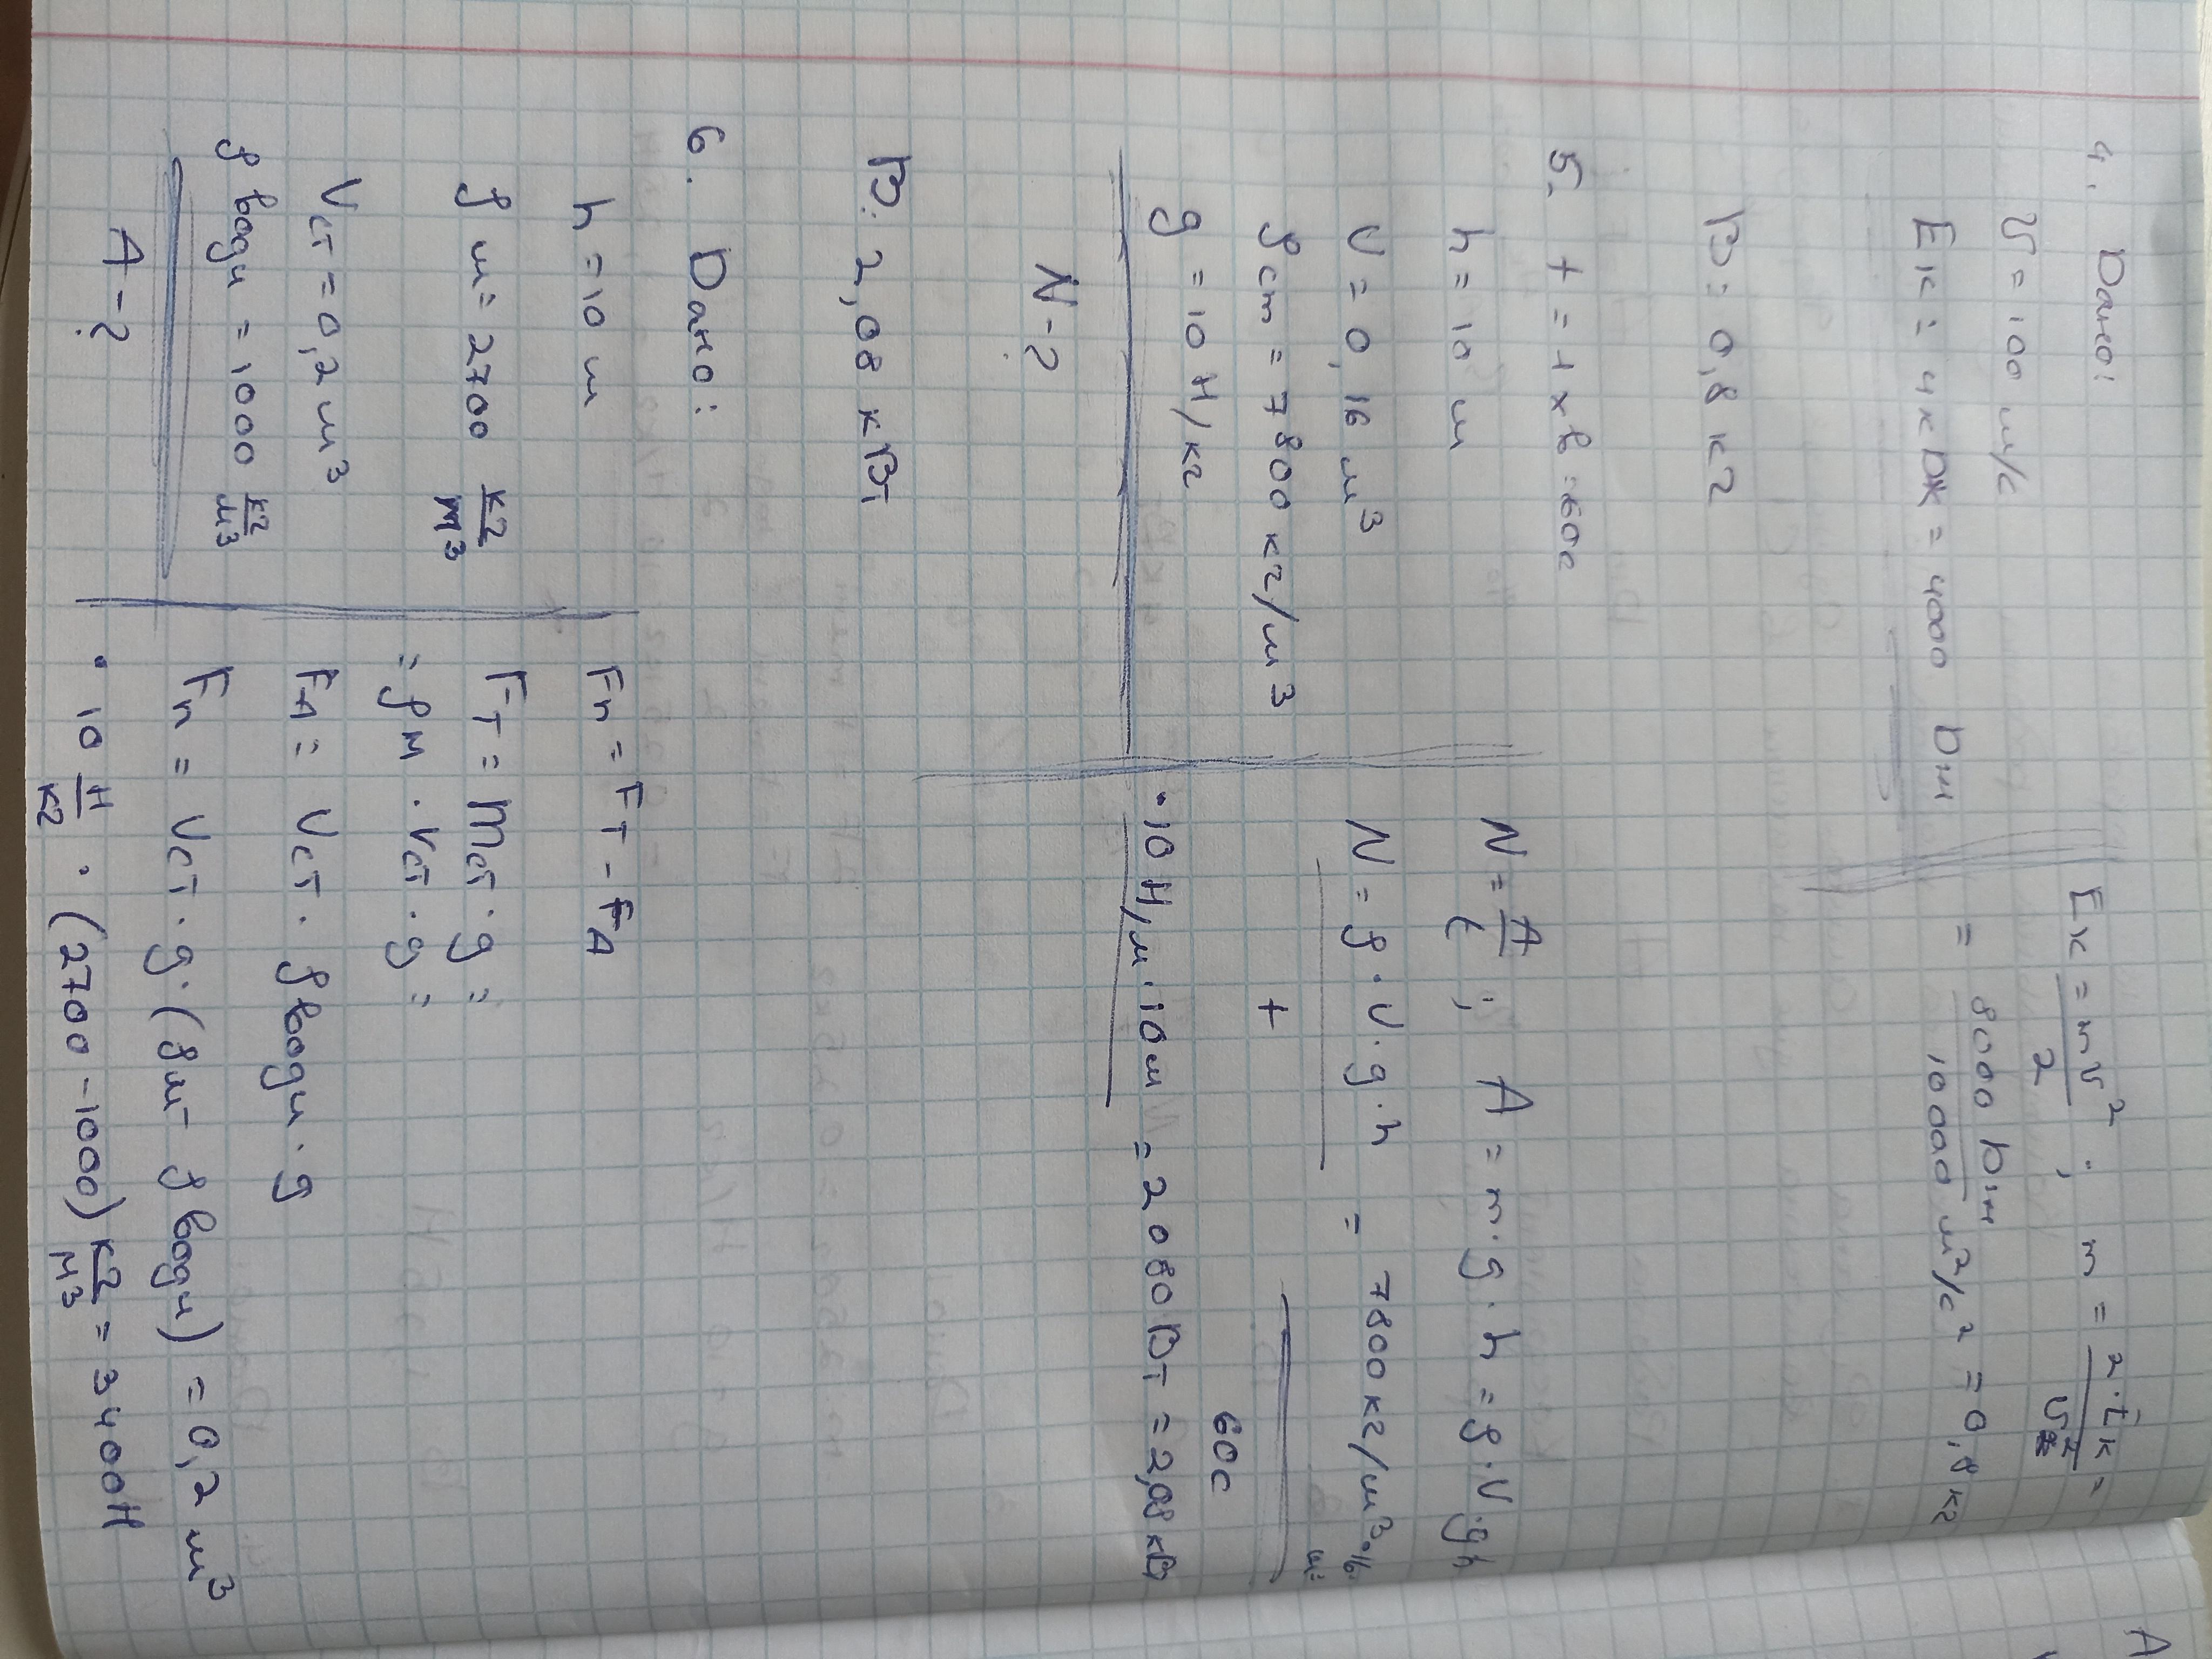 4. Дано:
V = 100 м/с
Eк = 4кДж = 4000 Дж
Eк = mV² / 2 ; m = 2·Eк / V² =
= 8000 Дж / 10000 м²/с² = 0,8 кг
В: 0,8 кг
5. t = 1 хв = 60с
h = 10 м
V = 0,16 м³
ρст = 7800 кг/м³
g = 10 Н/кг
N - ?
N = A / t ; A = m·g·h = ρ·V·gh
N = ρ·V·g·h / t = 7800 кг/м³·0,16 м³
·10 Н/м·10м / 60с = 2080 Вт = 2,08 кВ
В: 2,08 кВт
6. Дано:
h = 10 м
ρм = 2700 кг/м³
Vст = 0,2 м³
ρводи = 1000 кг/м³
A - ?
Fп = Fт - FA
Fт = mст·g =
= ρм·Vст·g =
FA = Vст·ρводи·g
Fп = Vст·g·(ρм - ρводи) = 0,2 м³
·10 Н/кг·(2700 - 1000) кг/м³ = 3400Н